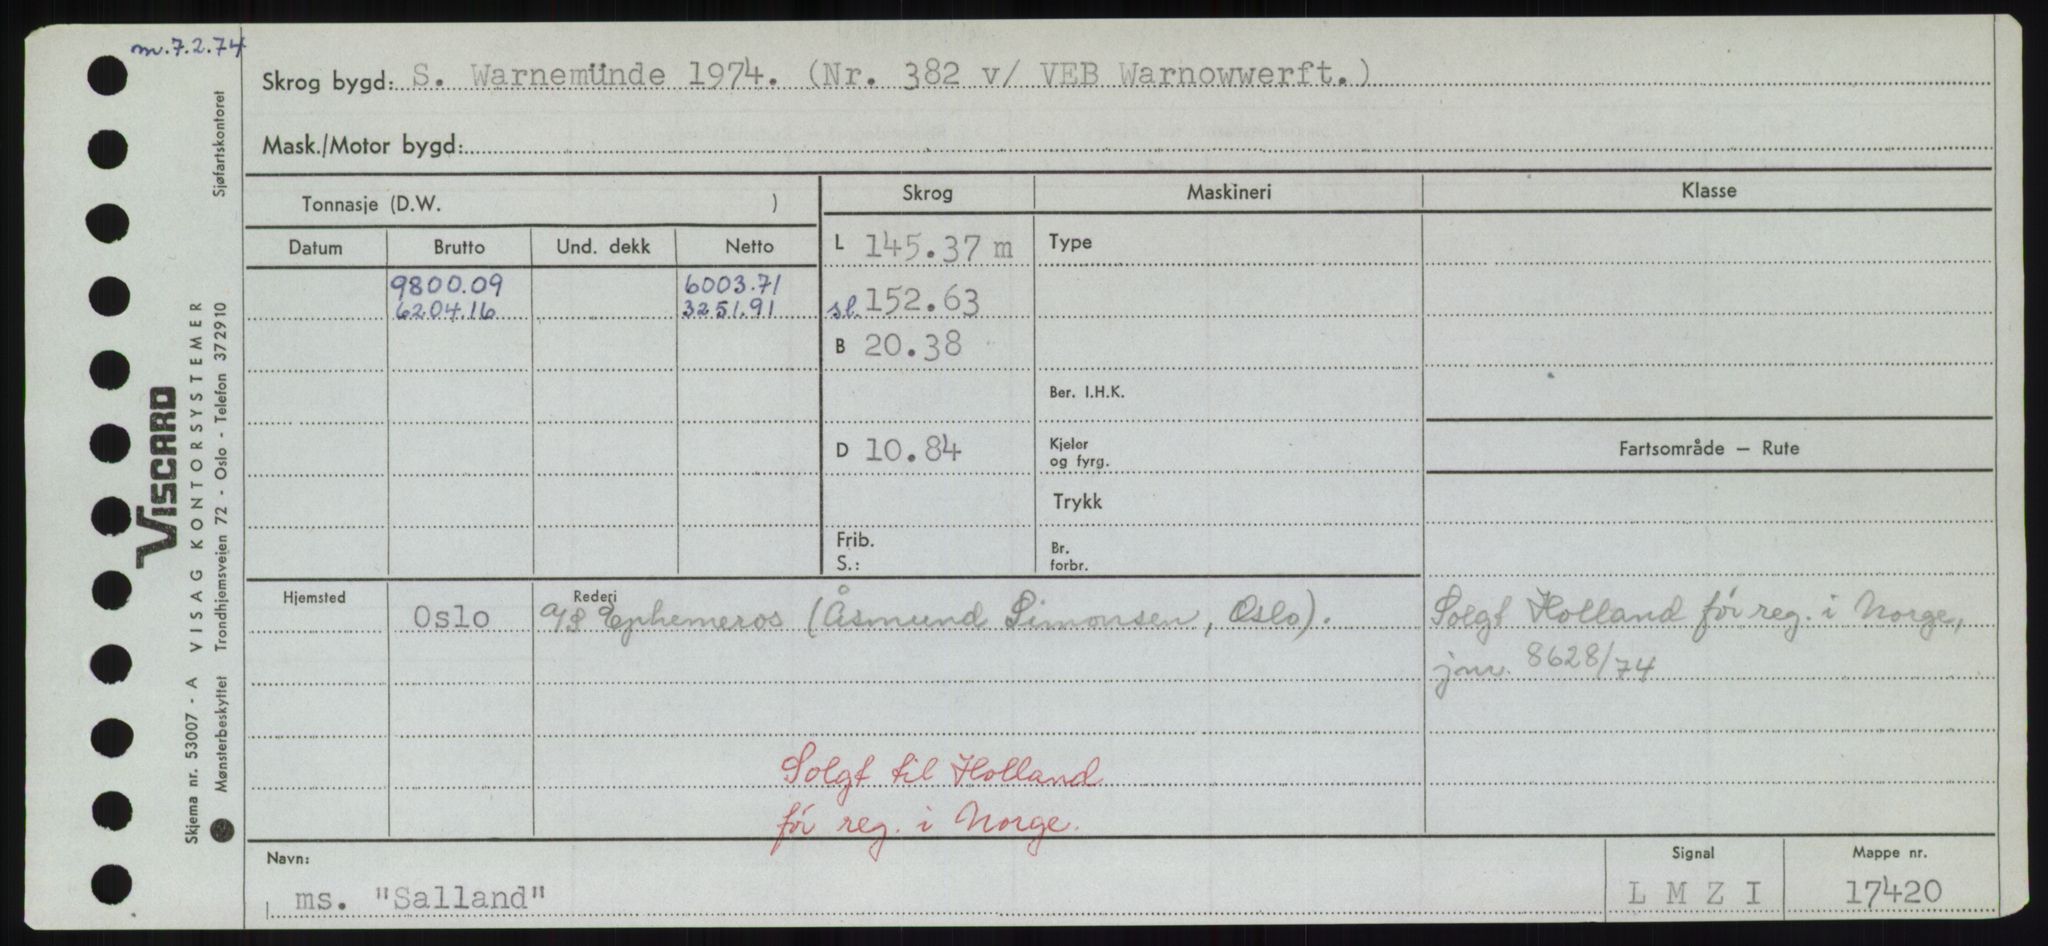 m. 7.2.74
Skrog bygd: S. Warnemünde 1974. (Nr. 382 v/ VEB Warnowwerft.)
Mask./Motor bygd:
Tonnasje (D.W. )
Skrog
Maskineri
Klasse
Datum
Brutto
Und. dekk
Netto
L 145.37 m
Type
9800.09
6003.71
6204.16
3251.91
sl. 152.63
B 20.38
Ber. I.H.K.
D 10.84
Kjeler
og fyrg.
Fartsområde — Rute
Trykk
Frib.
S.:
Br.
forbr.
Hjemsted
Oslo
Rederi
A/S Ephemeros (Åsmund Simonsen, Oslo).
Solgt Holland før reg. i Norge,
jnr. 8628/74
Solgt til Holland
før reg. i Norge.
Navn:
ms. "Salland"
Signal
L M Z I
Mappe nr.
17420
VISCARD
Skjema nr. 53007 - A VISAG KONTORSYSTEMER
Mønsterbeskyttet Trondhjemsveien 72 - Oslo - Telefon 372910
Sjøfartskontoret